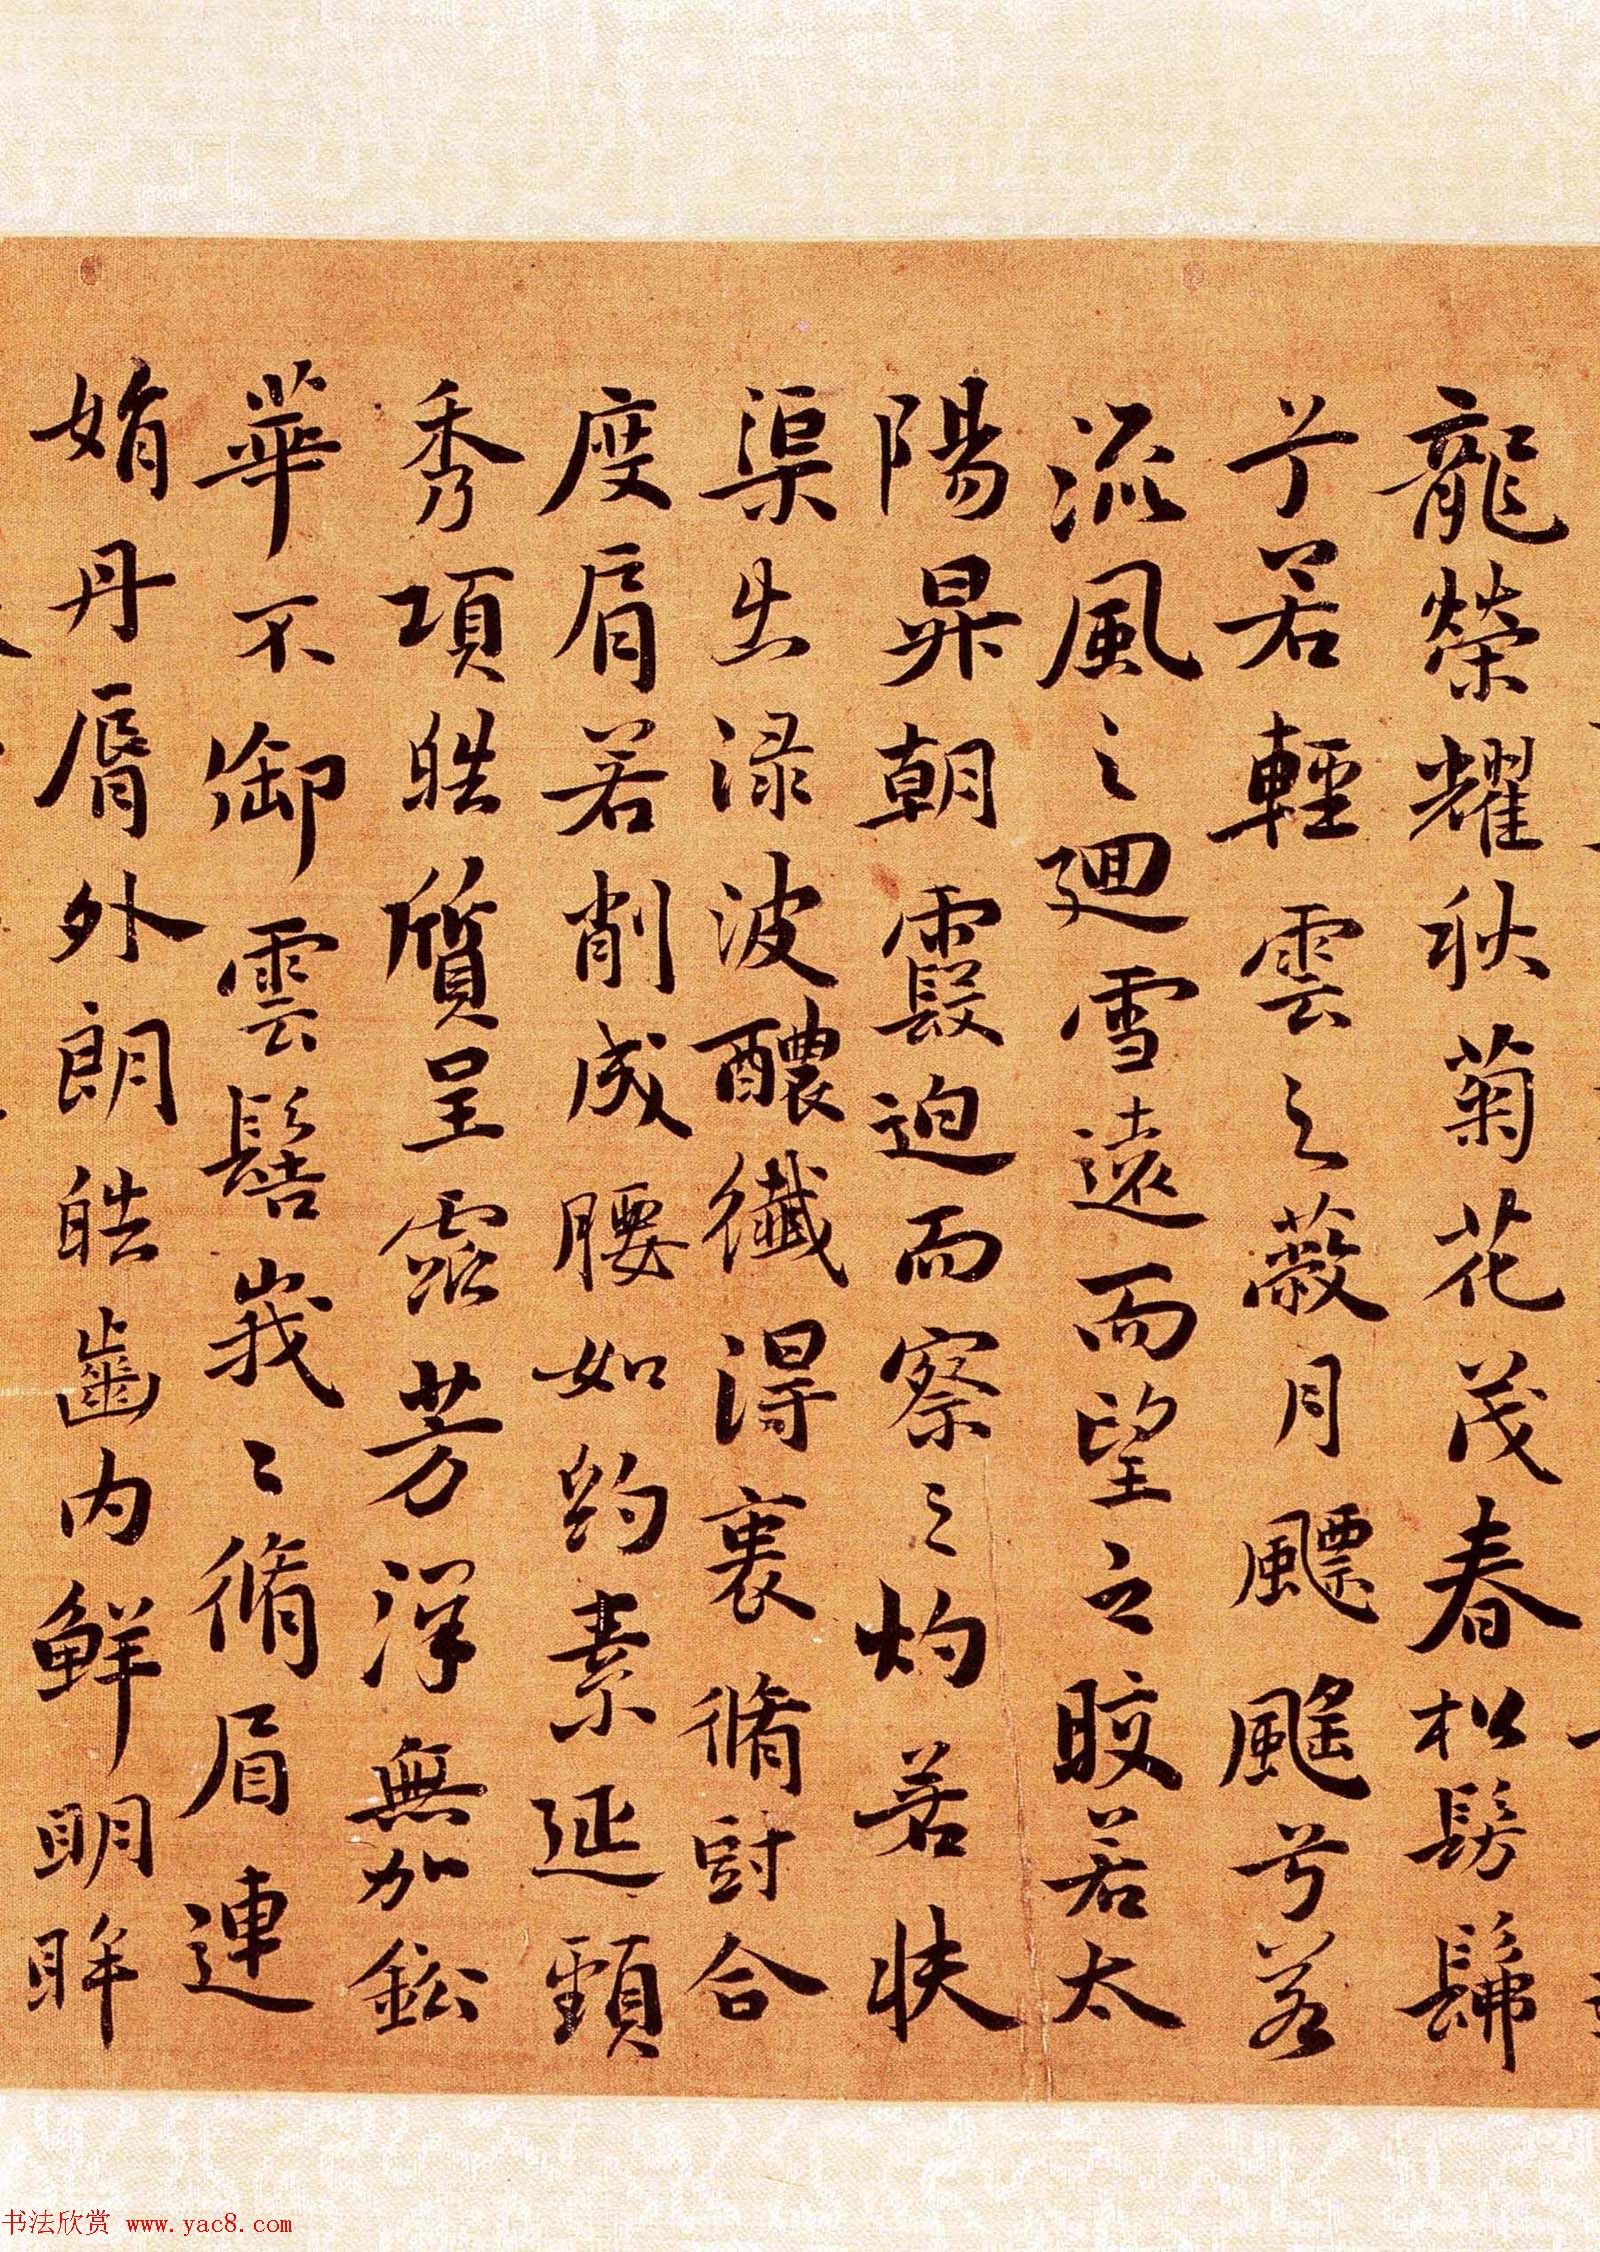 龍榮耀秋菊花茂春松髣髴
兮若輕雲之蔽月飄颻兮若
流風之廻雪遠而望之皎若太
陽昇朝霞迫而察之灼若芙
渠出渌波醲纖得衷脩䏔合
度肩若削成腰如約素延頸
秀項皓質呈露芳澤無加鉛
華不御雲髻峩〻脩眉連
娟丹脣外朗皓齒内鮮明眸
书法欣赏 www.yac8.com